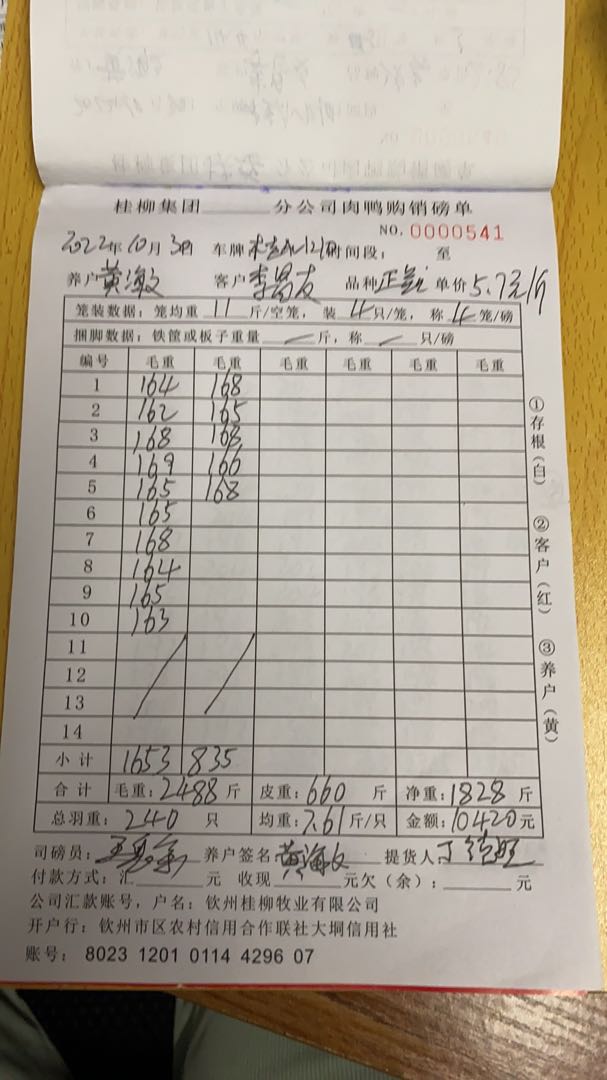 桂柳集团______分公司肉鸭购销磅单
NO. 0000541
2022年10月3日 车牌 时间段: 至
养户 黄海敏 客户 李昌友 品种 单价 5.7元/斤
笼装数据: 笼均重 11 斤/空笼, 装 4 只/笼, 称 4 笼/磅
捆脚数据: 铁筐或板子重量 — 斤, 称 — 只/磅
编号 毛重 毛重 毛重 毛重 毛重 毛重
1 164 168
2 162 165
3 168 168
4 169 166
5 165 168
6 165
7 168
8 164
9 165
10 163
11
12
13
14
小计 1653 835
合计 毛重: 2488 斤 皮重: 660 斤 净重: 1828 斤
总羽重: 240 只 均重: 7.61 斤/只 金额: 10420 元
司磅员: 养户签名 黄海敏 提货人
付款方式: 汇______元 收现______元欠(余): ______元
公司汇款账号, 户名: 钦州桂柳牧业有限公司
开户行: 钦州市区农村信用合作联社大垌信用社
账号: 8023 1201 0114 4296 07
①存根(白)
②客户(红)
③养户(黄)